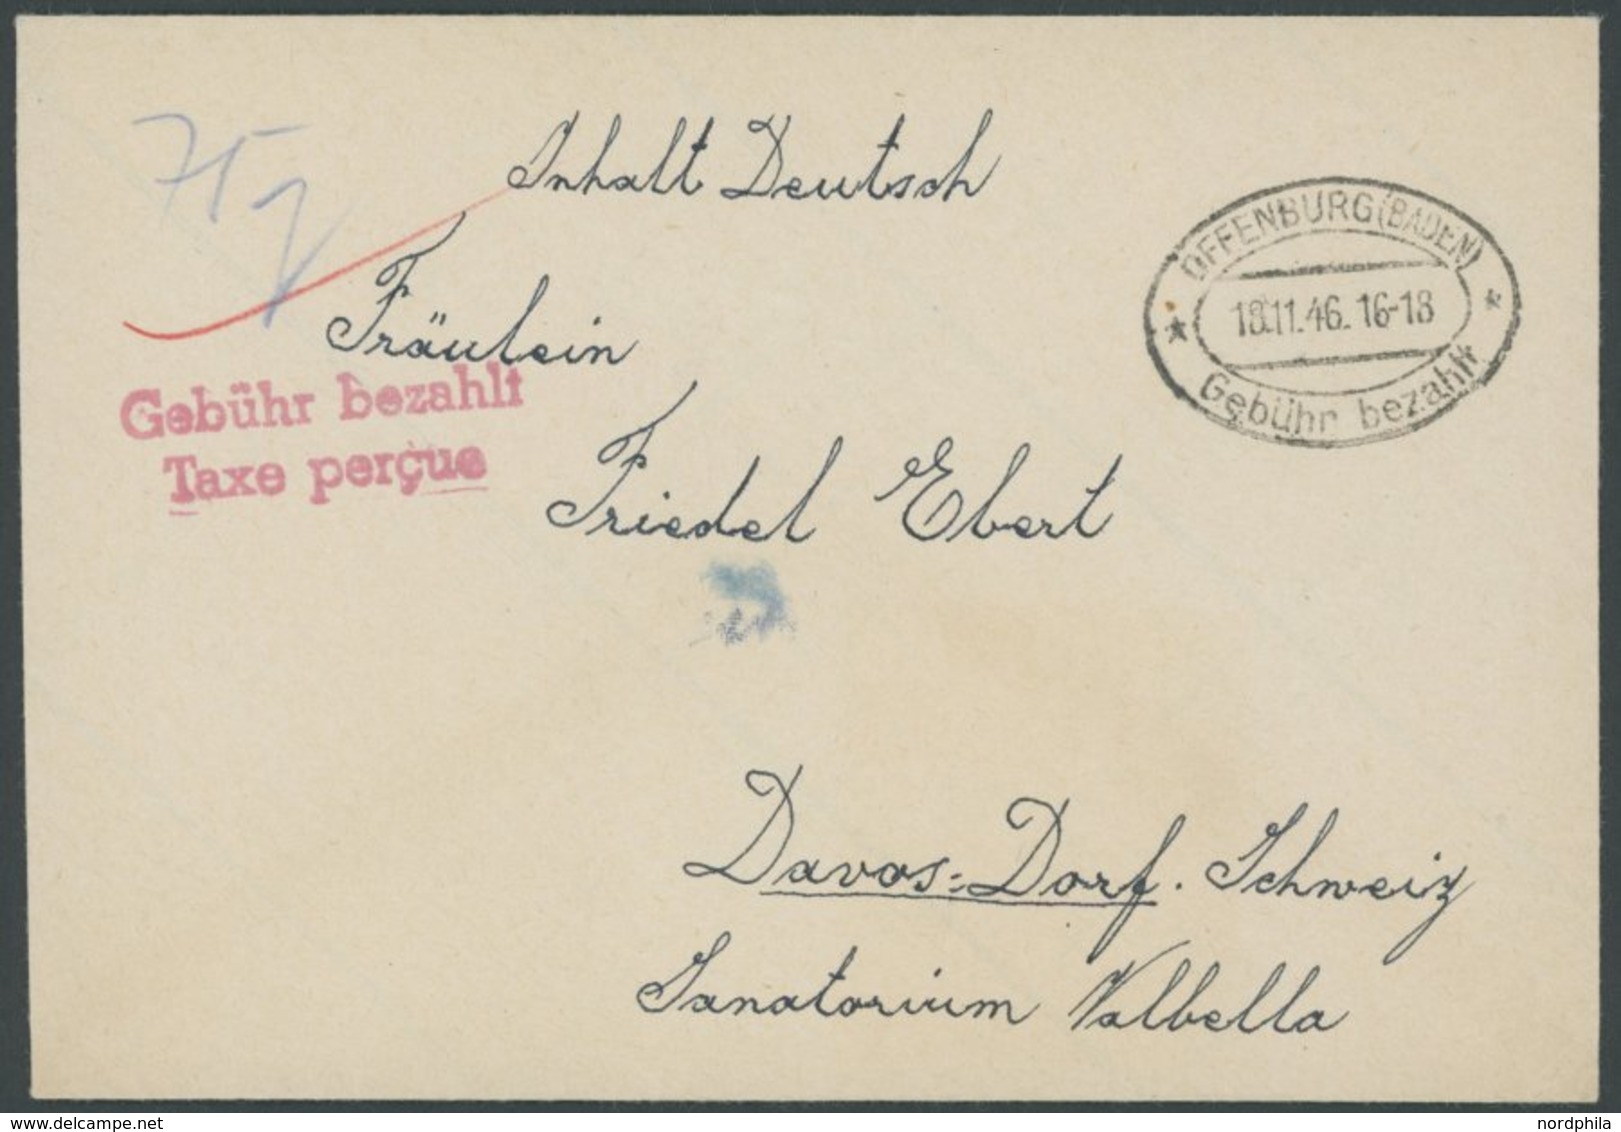 75
Inhalt Deutsch
OFFENBURG (BADEN)
18.11.46. 16-18
Gebühr bezahlt
Fräulein
Gebühr bezahlt
Taxe perçue
Friedel Ebert
Davos-Dorf. Schweiz
Sanatorium Valbella
delcampe.net
nordphila